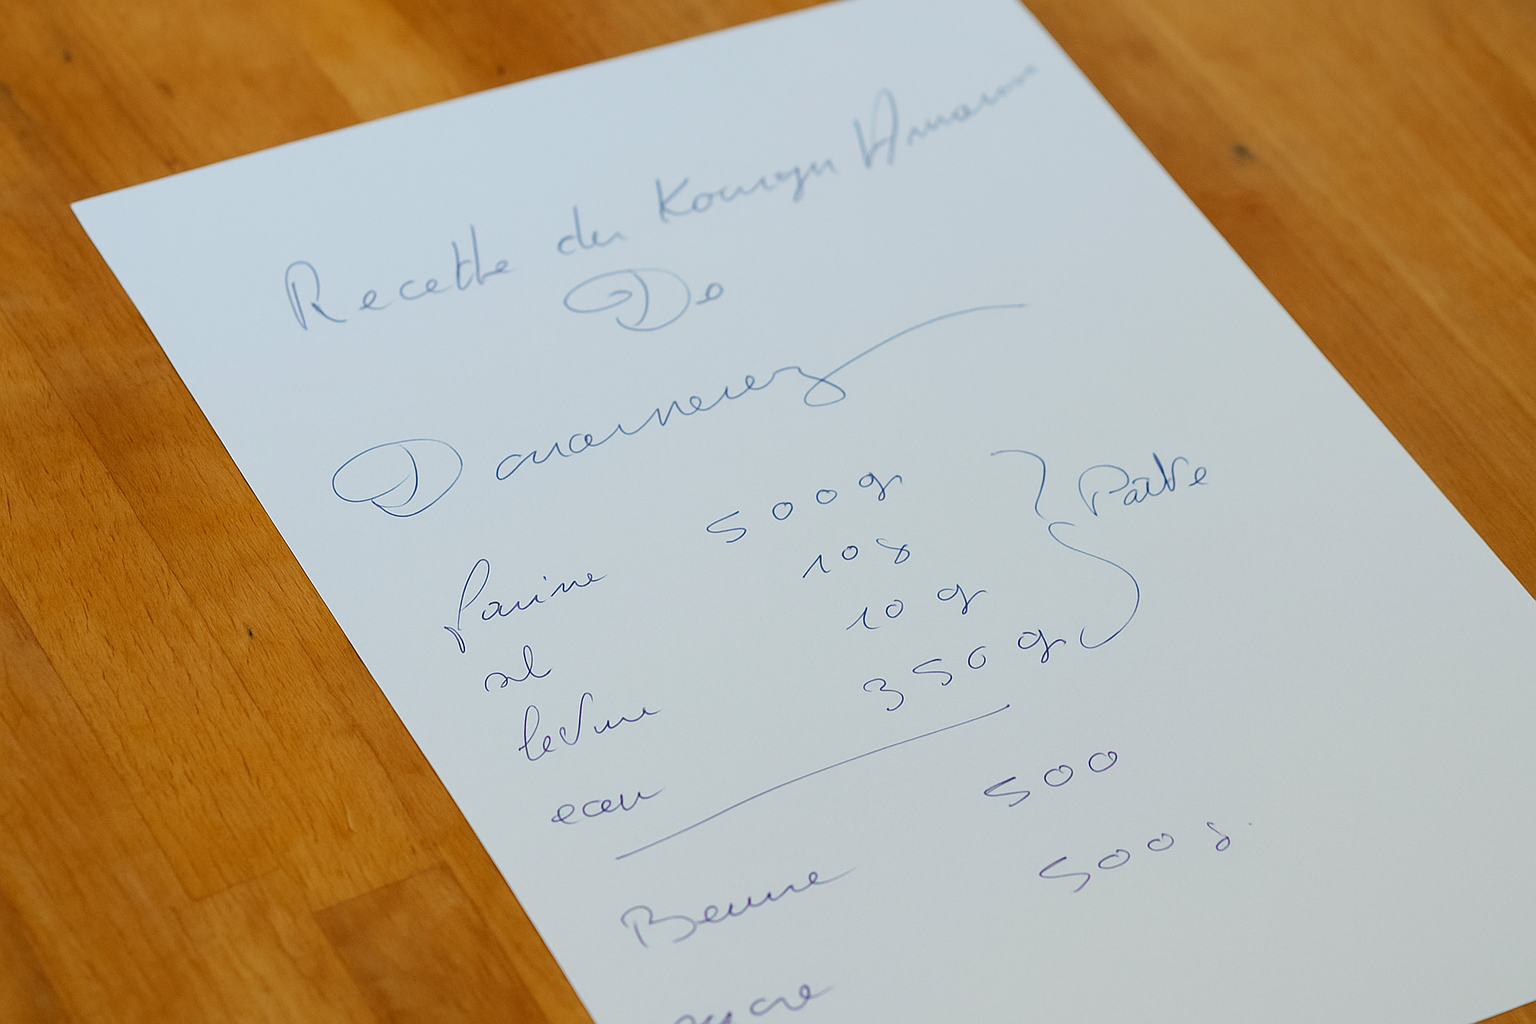 Recette du Kouign Amann
De
Douarnenez
farine 500g
sel 10g
levure 10 g
eau 350 g
Pâte
Beurre 500
sucre 500 g.